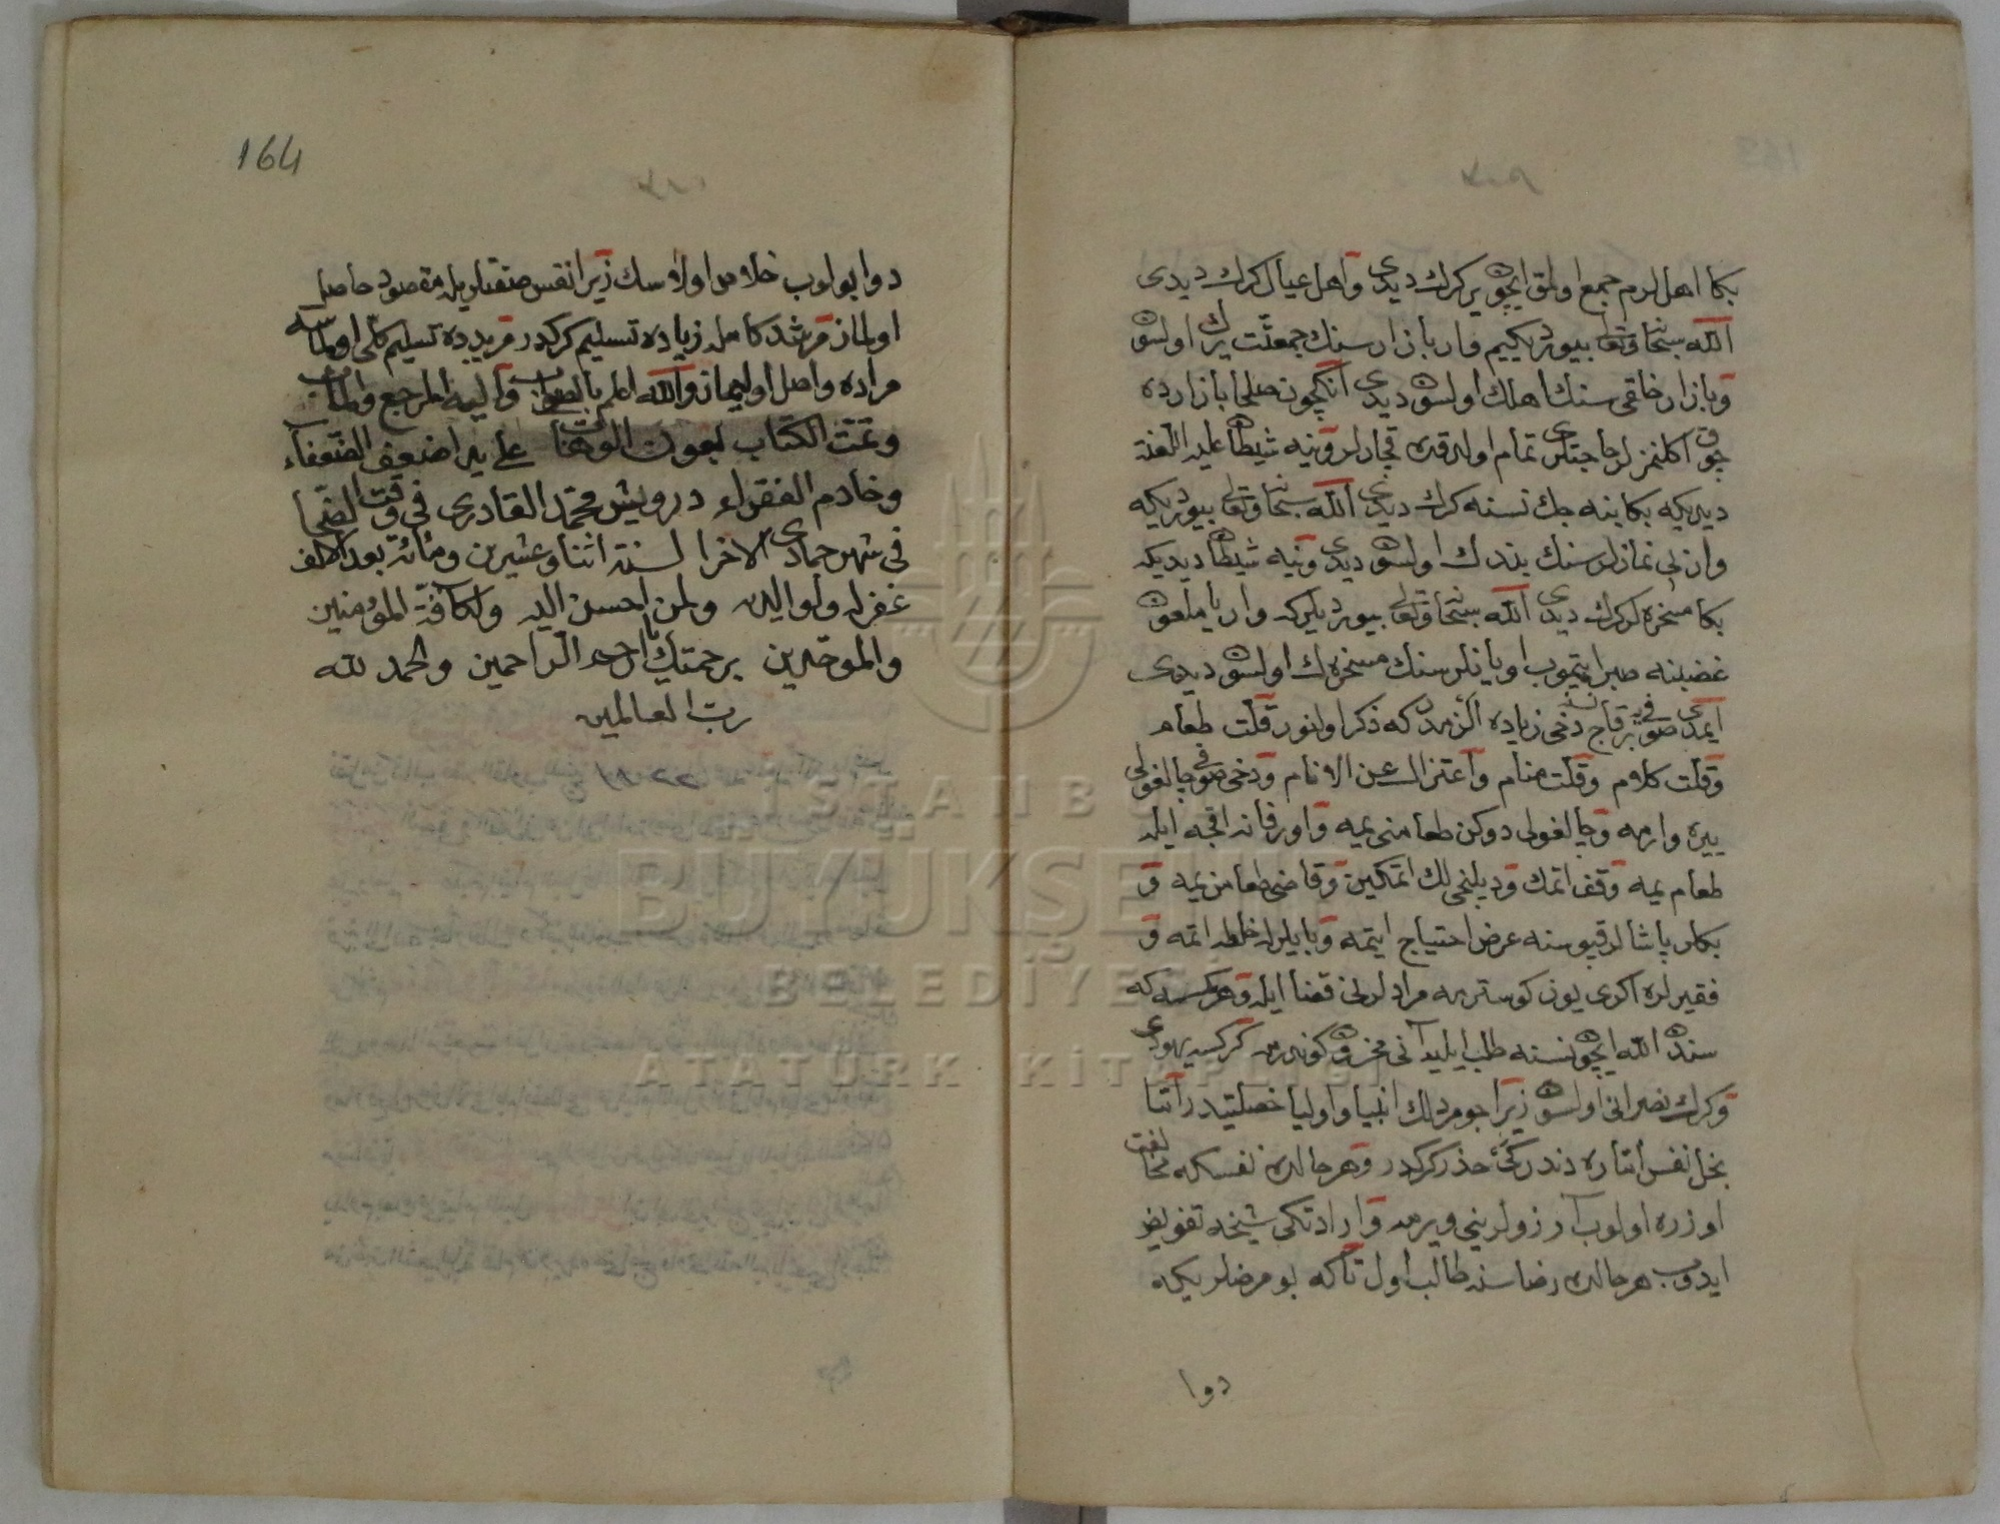 بكا اهللرم جمع اولمق ايچون ير كرك ديدى و اهل عيال كرك ديدى
الله سبحانه وتعالى بيوردىكيم وار بازار سنك جمعيّت يرك اولسون
و بازار خلقى سنك اهلك اولسون ديدى آنكچون صلحا بازارده
چوق اكلنمزلر حاجتلرى تمام اولدقده قچارلر و ينه شيطان عليه اللعنة
ديديكه بكا ينه جك نسنه كرك ديدى الله سبحانه وتعالى بيورديكه
وار بى نمازلر سنك يندك اولسون ديدى و ينه شيطان ديديكه
بكا مسخره لر كرك ديدى الله سبحانه وتعالى بيورديلركه وار يا ملعون
غضبنه صبر ايتميوب اويانلر سنك مسخرهك اولسون ديدى
ايمدى صوفى يه بر قاچ نسنه دخى زياده الزمدر كه ذكر اولنور قلّت طعام
و قلّت كلام و قلّت منام و اعتزال عن الانام و دخى صوفى چالغولى
ييره وارمه و چالغولى دوكن طعامنى يمه و اورفانه اقچه ايله
طعام يمه وقف اتمك و ديلنجى لك اتمكين و قاضى طعامن يمه و
بكلر پاشالر قپوسنه عرض احتياج ايتمه و بايلرله خلطه اتمه و
فقيرلره اكرى يوز كوسترمه مرادلرنى قضا ايله و هر كمسه كه
سندن الله ايچون نسنه طلب ايليه آنى محزون كوندرمه كركسه يهودى
و كرك نصرانى اولسون زيرا جومردلك انبيا و اوليا خصلتيدر امّا
بخل نفس امّاره دندر كى حذر كركدر و هر حالده نفسكه مخالفت
اوزره اولوب آرزولرينى ويرمه و ارادتكى شيخه تفويض
ايدوب هر حالده رضاسنه طالب اول تا كه بو مرضلريكه
دوا
164
دوا بولوب خلاص اولاسك زيرا نفس صفتلريله مقصود حاصل
اولماز مرشد كامله زياده تسليم كركدر مريدده تسليم كلّى اولماسه
مراده واصل اوليماز والله اعلم بالصواب و اليه المرجع والمآب
و تمّت الكتاب بعون الوهّاب على يد اضعف الضّعفاء
و خادم الفقراء درويش محمّد القادرى فى وقت الضّحى
فى شهر جمادى الاخرا لسنة اثنا وعشرين ومائه بعد الالف
غفر له ولوالديه ولمن احسن اليه ولكافّة المؤمنين
والموحّدين برحمتك يا ارحم الرّاحمين والحمد لله
ربّ العالمين
İSTANBUL
BÜYÜKŞEHİR
BELEDİYESİ
ATATÜRK KİTAPLIĞI